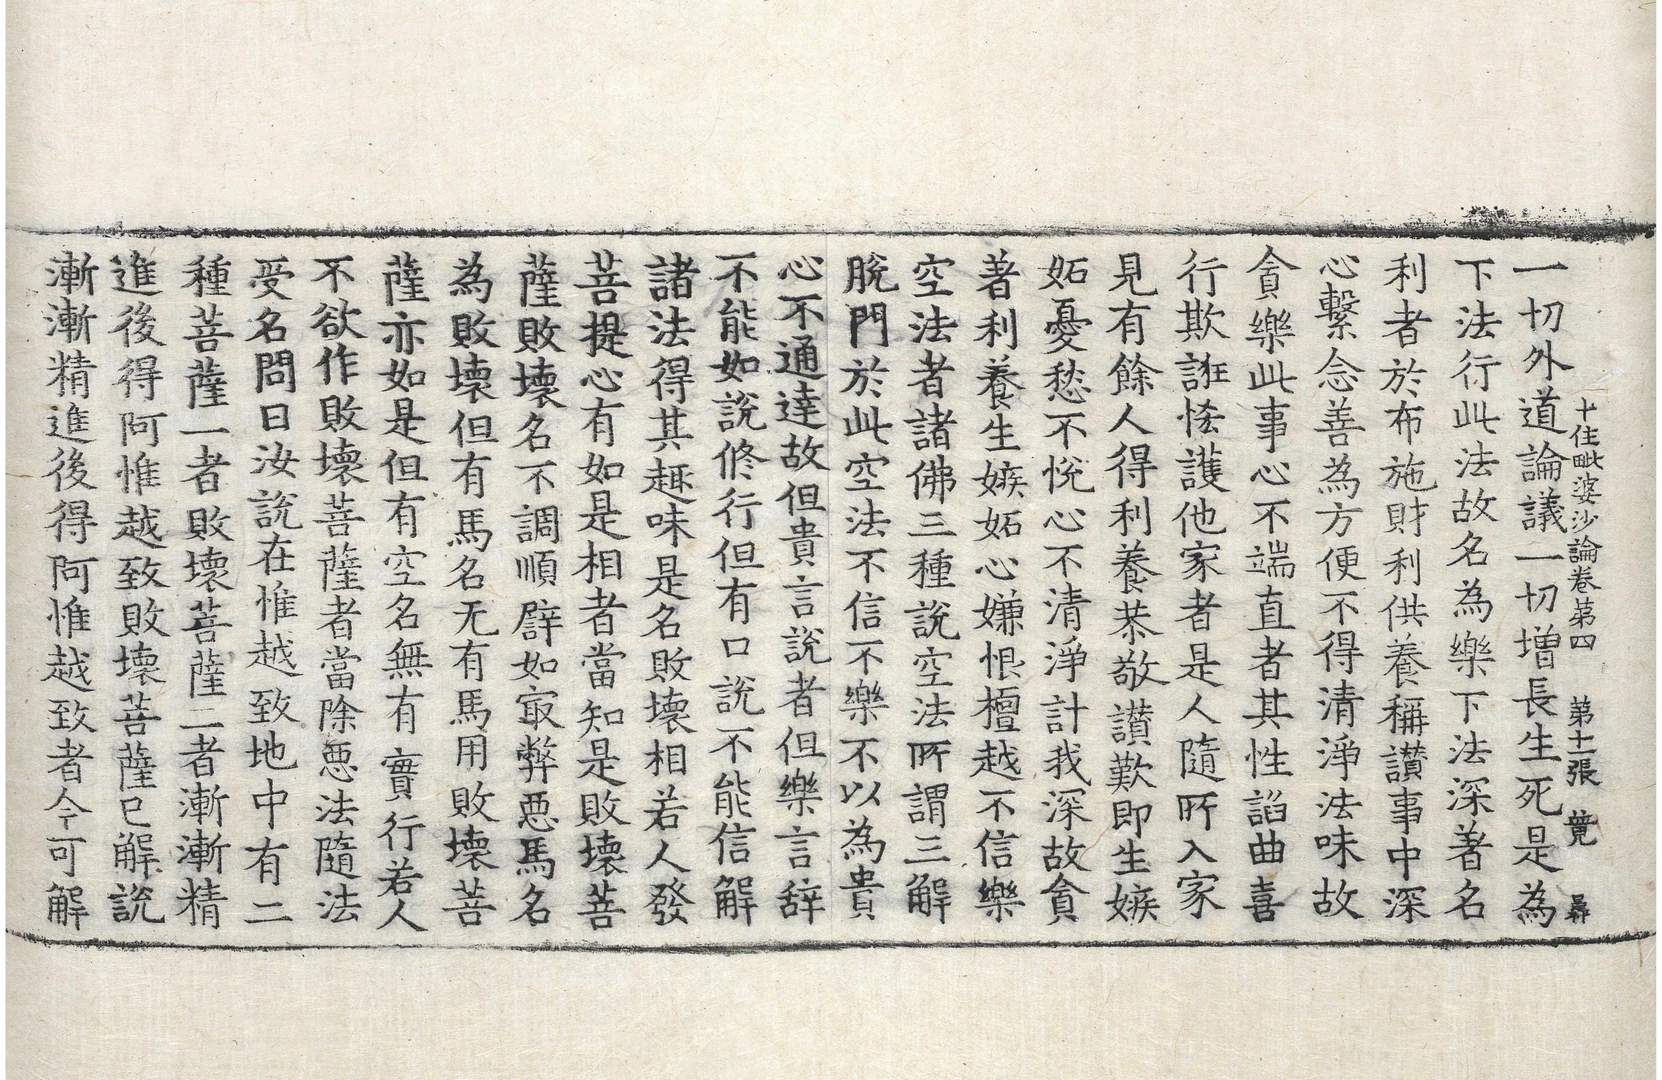 十住毗婆沙論卷第四　第十一張　競
一切外道論議一切增長生死是為
下法行此法故名為樂下法深著名
利者於布施財利供養稱讃事中深
心繫念善為方便不得清淨法味故
貪樂此事心不端直者其性諂曲喜
行欺誑悋護他家者是人隨所入家
見有餘人得利養恭敬讃歎即生嫉
妬憂愁不悅心不清淨計我深故貪
著利養生嫉妬心嫌恨檀越不信樂
空法者諸佛三種說空法所謂三解
脫門於此空法不信不樂不以為貴
心不通達故但貴言說者但樂言辝
不能如說修行但有口說不能信解
諸法得其趣味是名敗壞相若人發
菩提心有如是相者當知是敗壞菩
薩敗壞名不調順譬如冣弊惡馬名
為敗壞但有馬名无有馬用敗壞菩
薩亦如是但有空名無有實行若人
不欲作敗壞菩薩者當除惡法隨法
受名問曰汝說在惟越致地中有二
種菩薩一者敗壞菩薩二者漸漸精
進後得阿惟越致敗壞菩薩已解說
漸漸精進後得阿惟越致者今可解